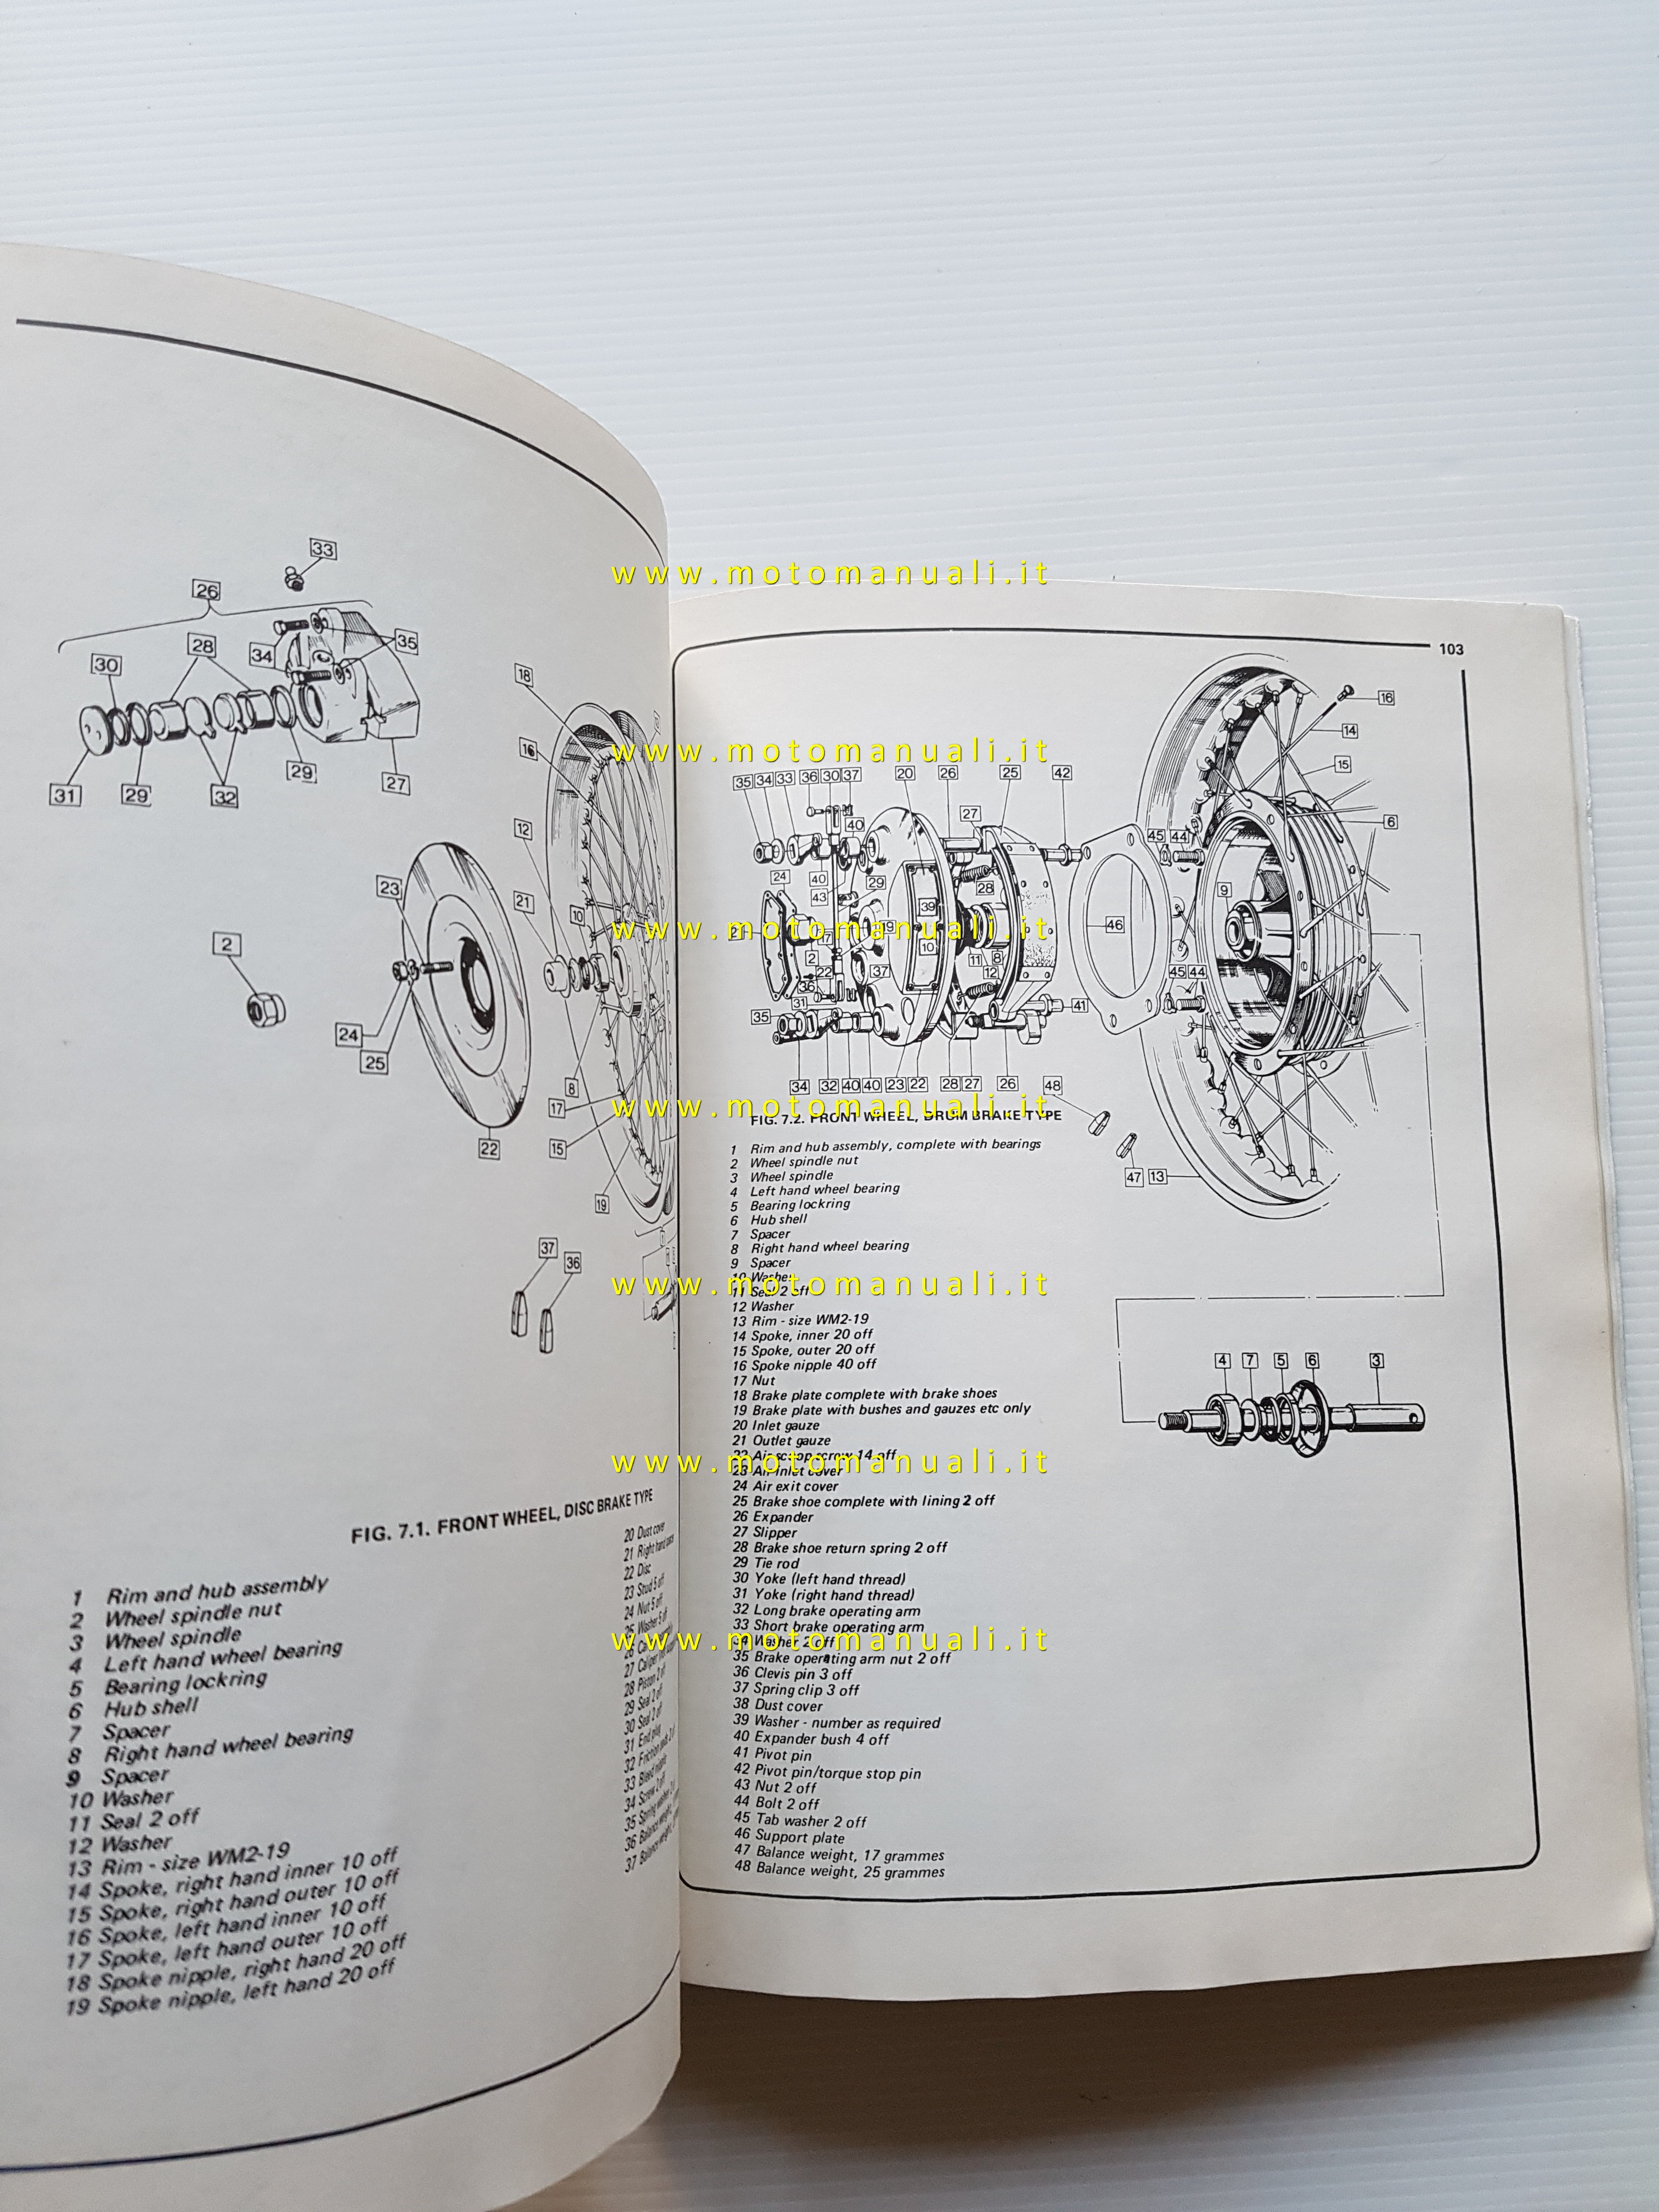 FIG. 7.1. FRONT WHEEL, DISC BRAKE TYPE
1 Rim and hub assembly
2 Wheel spindle nut
3 Wheel spindle
4 Left hand wheel bearing
5 Bearing lockring
6 Hub shell
7 Spacer
8 Right hand wheel bearing
9 Spacer
10 Washer
11 Seal 2 off
12 Washer
13 Rim - size WM2-19
14 Spoke, right hand inner 10 off
15 Spoke, right hand outer 10 off
16 Spoke, left hand inner 10 off
17 Spoke, left hand outer 10 off
18 Spoke nipple, right hand 20 off
19 Spoke nipple, left hand 20 off
20 Dust cover
21 Right hand
22 Disc
23 Stud 5 off
24 Nut 5 off
25 Washer 5 off
26
27 Caliper
28 Piston 2 off
29 Seal 2 off
30 Seal 2 off
31 End plug
32 Friction
33 Bleed nipple
34 Screw 2 off
35 Spring washer 2
36 Balance weight,
37 Balance weight,
103
FIG. 7.2. FRONT WHEEL, DRUM BRAKE TYPE
1 Rim and hub assembly, complete with bearings
2 Wheel spindle nut
3 Wheel spindle
4 Left hand wheel bearing
5 Bearing lockring
6 Hub shell
7 Spacer
8 Right hand wheel bearing
9 Spacer
10 Washer
11 Seal 2 off
12 Washer
13 Rim - size WM2-19
14 Spoke, inner 20 off
15 Spoke, outer 20 off
16 Spoke nipple 40 off
17 Nut
18 Brake plate complete with brake shoes
19 Brake plate with bushes and gauzes etc only
20 Inlet gauze
21 Outlet gauze
22 Air scoop screw 14 off
23 Air inlet cover
24 Air exit cover
25 Brake shoe complete with lining 2 off
26 Expander
27 Slipper
28 Brake shoe return spring 2 off
29 Tie rod
30 Yoke (left hand thread)
31 Yoke (right hand thread)
32 Long brake operating arm
33 Short brake operating arm
34 Washer 2 off
35 Brake operating arm nut 2 off
36 Clevis pin 3 off
37 Spring clip 3 off
38 Dust cover
39 Washer - number as required
40 Expander bush 4 off
41 Pivot pin
42 Pivot pin/torque stop pin
43 Nut 2 off
44 Bolt 2 off
45 Tab washer 2 off
46 Support plate
47 Balance weight, 17 grammes
48 Balance weight, 25 grammes
www.motomanuali.it
www.motomanuali.it
www.motomanuali.it
www.motomanuali.it
www.motomanuali.it
www.motomanuali.it
www.motomanuali.it